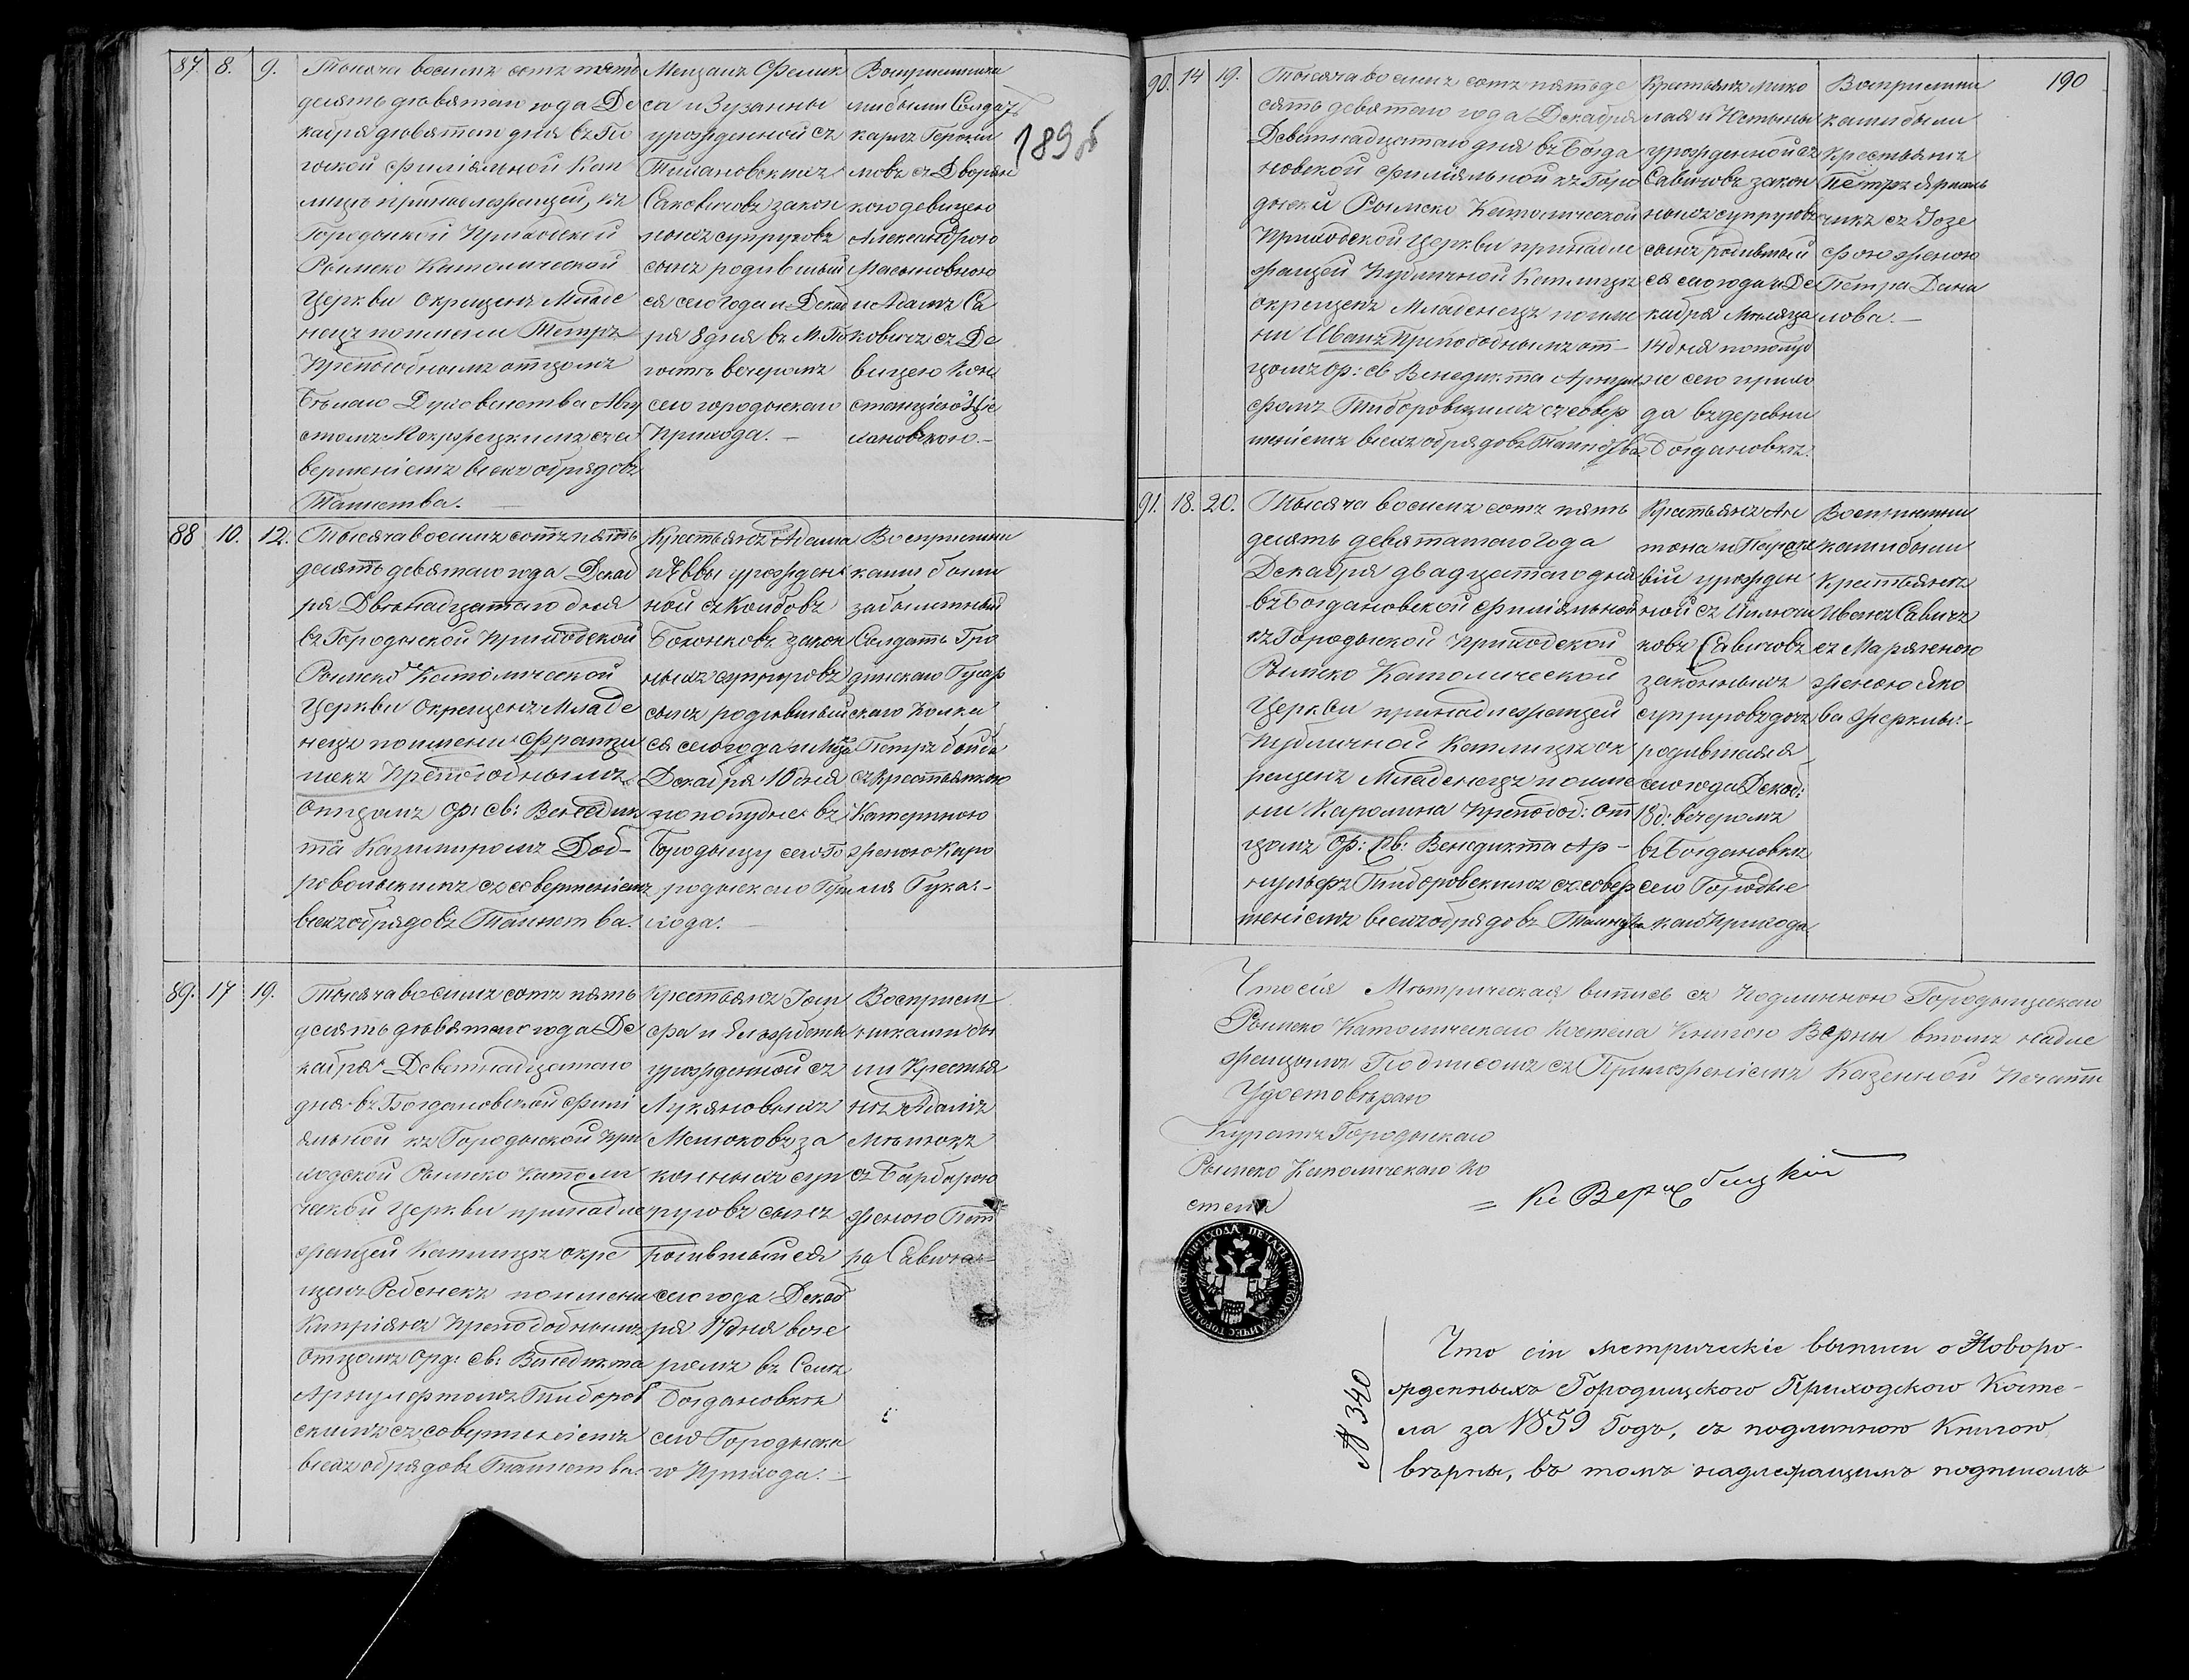 87. 8. 9.
Тысяча восемь сотъ пять
десять девятаго года Де
кабря девятаго дня въ По
гоской филіяльной Кап
лицѣ принадлежащей, къ
Городыской Приходской
Римско Католической
Церкви окрещенъ Младе
нецъ по имени Петръ
Преподобнымъ отцомъ
Бѣлаго Духовенства Авгу
стомъ съ со
вершеніемъ всехъ обрядовъ
Таинства.
Мещанъ Фелик
са и Зузанны
урожденной съ
Тишановскихъ
Саковичовъ закон
ныхъ супруговъ
сынъ родившый
ся сего года и Декаб
ря 8 дня въ М. По
гость вечеромъ
сего городыскаго
Прихода.
Воспріемника
ми были Солдат
каръ Героним
мовъ съ Дворян
кою девицею
Александрою
Масыновною
и Адамъ Са
ковичъ съ Де
вицею Кон
станціею
лановскою.
189 об
88 10. 12.
Тысяча восемь сотъ пять
десять девятаго года Декаб
ря Двенадцатаго дня
въ Городыской Приходской
Римско Католической
Церкви Окрещенъ Младе
нецъ по имени Францы
шекъ Преподобнымъ
Отцомъ Ор: св: Венедик
та Казимиромъ Доб-
ровольскимъ съ совершеніемъ
всехъ обрядовъ Таинства.
Крестьянъ Адама
и Еввы урожден
ной съ Коибовъ
Боконковъ закон
ныхъ супруговъ
сынъ родившый
ся сего года и М-ца
Декабря 10 дня
по полудне въ
Городыщу сего Го
родыскаго При
хода.
Воспріемни
ками были
забылетный
Солдатъ Гро
дненскаго Гусар
скаго Полка
Петръ Бойба
съ Крестьянкою
Катериною
женою Каро
ля Гука.
89. 17 19.
Тысяча восемь сотъ пять
десять девятаго года Де
кабря Девятнадцатаго
дня въ Богдановской фили
яльной къ Городыской При
ходской Римско Католи
ческой Церкви принадле
жащей Каплицѣ окре
щенъ Ребенекъ по имени
Кипріянъ Преподобнымъ
Отцомъ Орд: св: Венедикта
Арнульфомъ Тыборов
скимъ съ совершеніемъ
всехъ обрядовъ Таинства.
Крестьянъ Гои
фа и Елъжбеты
урожденной съ
Лукяновыхъ
Мелюковъ за
конныхъ суп
руговъ сынъ
родившыйся
сего года Декаб
ря 17 дня вече
ромъ въ Селѣ
Богдановкѣ
сего Городыска
го Прихода.
Воспріем
никами бы
ли Крестья
не Адамъ
Мелюкъ
съ Барбарою
женою Пет
ра Савича.
190
90. 14 19.
Тысяча восемь сотъ пятьде
сять девятаго года Декабря
Девятнадцатаго дня въ Богда
новской филіяльной къ Горо
дыской Римско Католической
Приходской Церкви принадле
жащей Публичной Каплицѣ
окрещенъ Младенецъ по име
ни Иванъ Преподобнымъ от-
цомъ Ор: св Венедикта Арнуль
фомъ Тыборовскимъ съ совер
шеніемъ всехъ обрядовъ Таинства
Крестьянъ Мико
лая и Юстыны
урожденной съ
Савичовъ закон
ныхъ супруговъ
сынъ родившый
ся сего года и Де
кабря Месяца
14 дня по полуд
не сего прихо
да въ деревни
Богдановкѣ.
Воспріемни
ками были
Крестьяне
Петръ Ярмоль
чикъ съ Юзе
фою женою
Петра Дани
лова.
91. 18. 20.
Тысяча восемь сотъ пять
десять девятаго года
Декабря двадцатаго дня
въ Богдановской филіяльной
къ Городыской Приходской
Римско Католической
Церкви принадлежащей
Публичной Каплицѣ ок
рещенъ Младенецъ по име
ни Каролина Преподоб: от
цомъ Ор: св: Венедикта Ар-
нульфъ Тыборовскимъ съ совер
шеніемъ всехъ обрядовъ Таинства
Крестьянъ Ан
тона и Параске
віи урожден
ной съ
ковъ Савичовъ
законныхъ
супруговъ дочь
родившаяся
сего года Декаб:
18 д: вечеромъ
въ Богдановкѣ
сего Городыс
каго Прихода
Воспріемни
ками были
Крестьяне
Иванъ Савичъ
съ Маряною
женою Яко
ва Жерклы.
Что сія Метрическая выпись съ Подлинною Городыщскаго
Римско Католическаго Костела Книгою Верны в томъ надле
жащымъ Подписомъ съ Приложеніемъ Казенной Печати
Удостоверяю
Куратъ Городыскаго
Римско Католическаго Ко
стела
= Кс Вержбицкій
№ 340
Что сіи метрическіе выписи о Новоро-
жденныхъ Городищскаго Приходскаго Косте-
ла за 1859 Годъ, съ подлинною Книгою
вѣрны, въ томъ надлежащимъ подписомъ